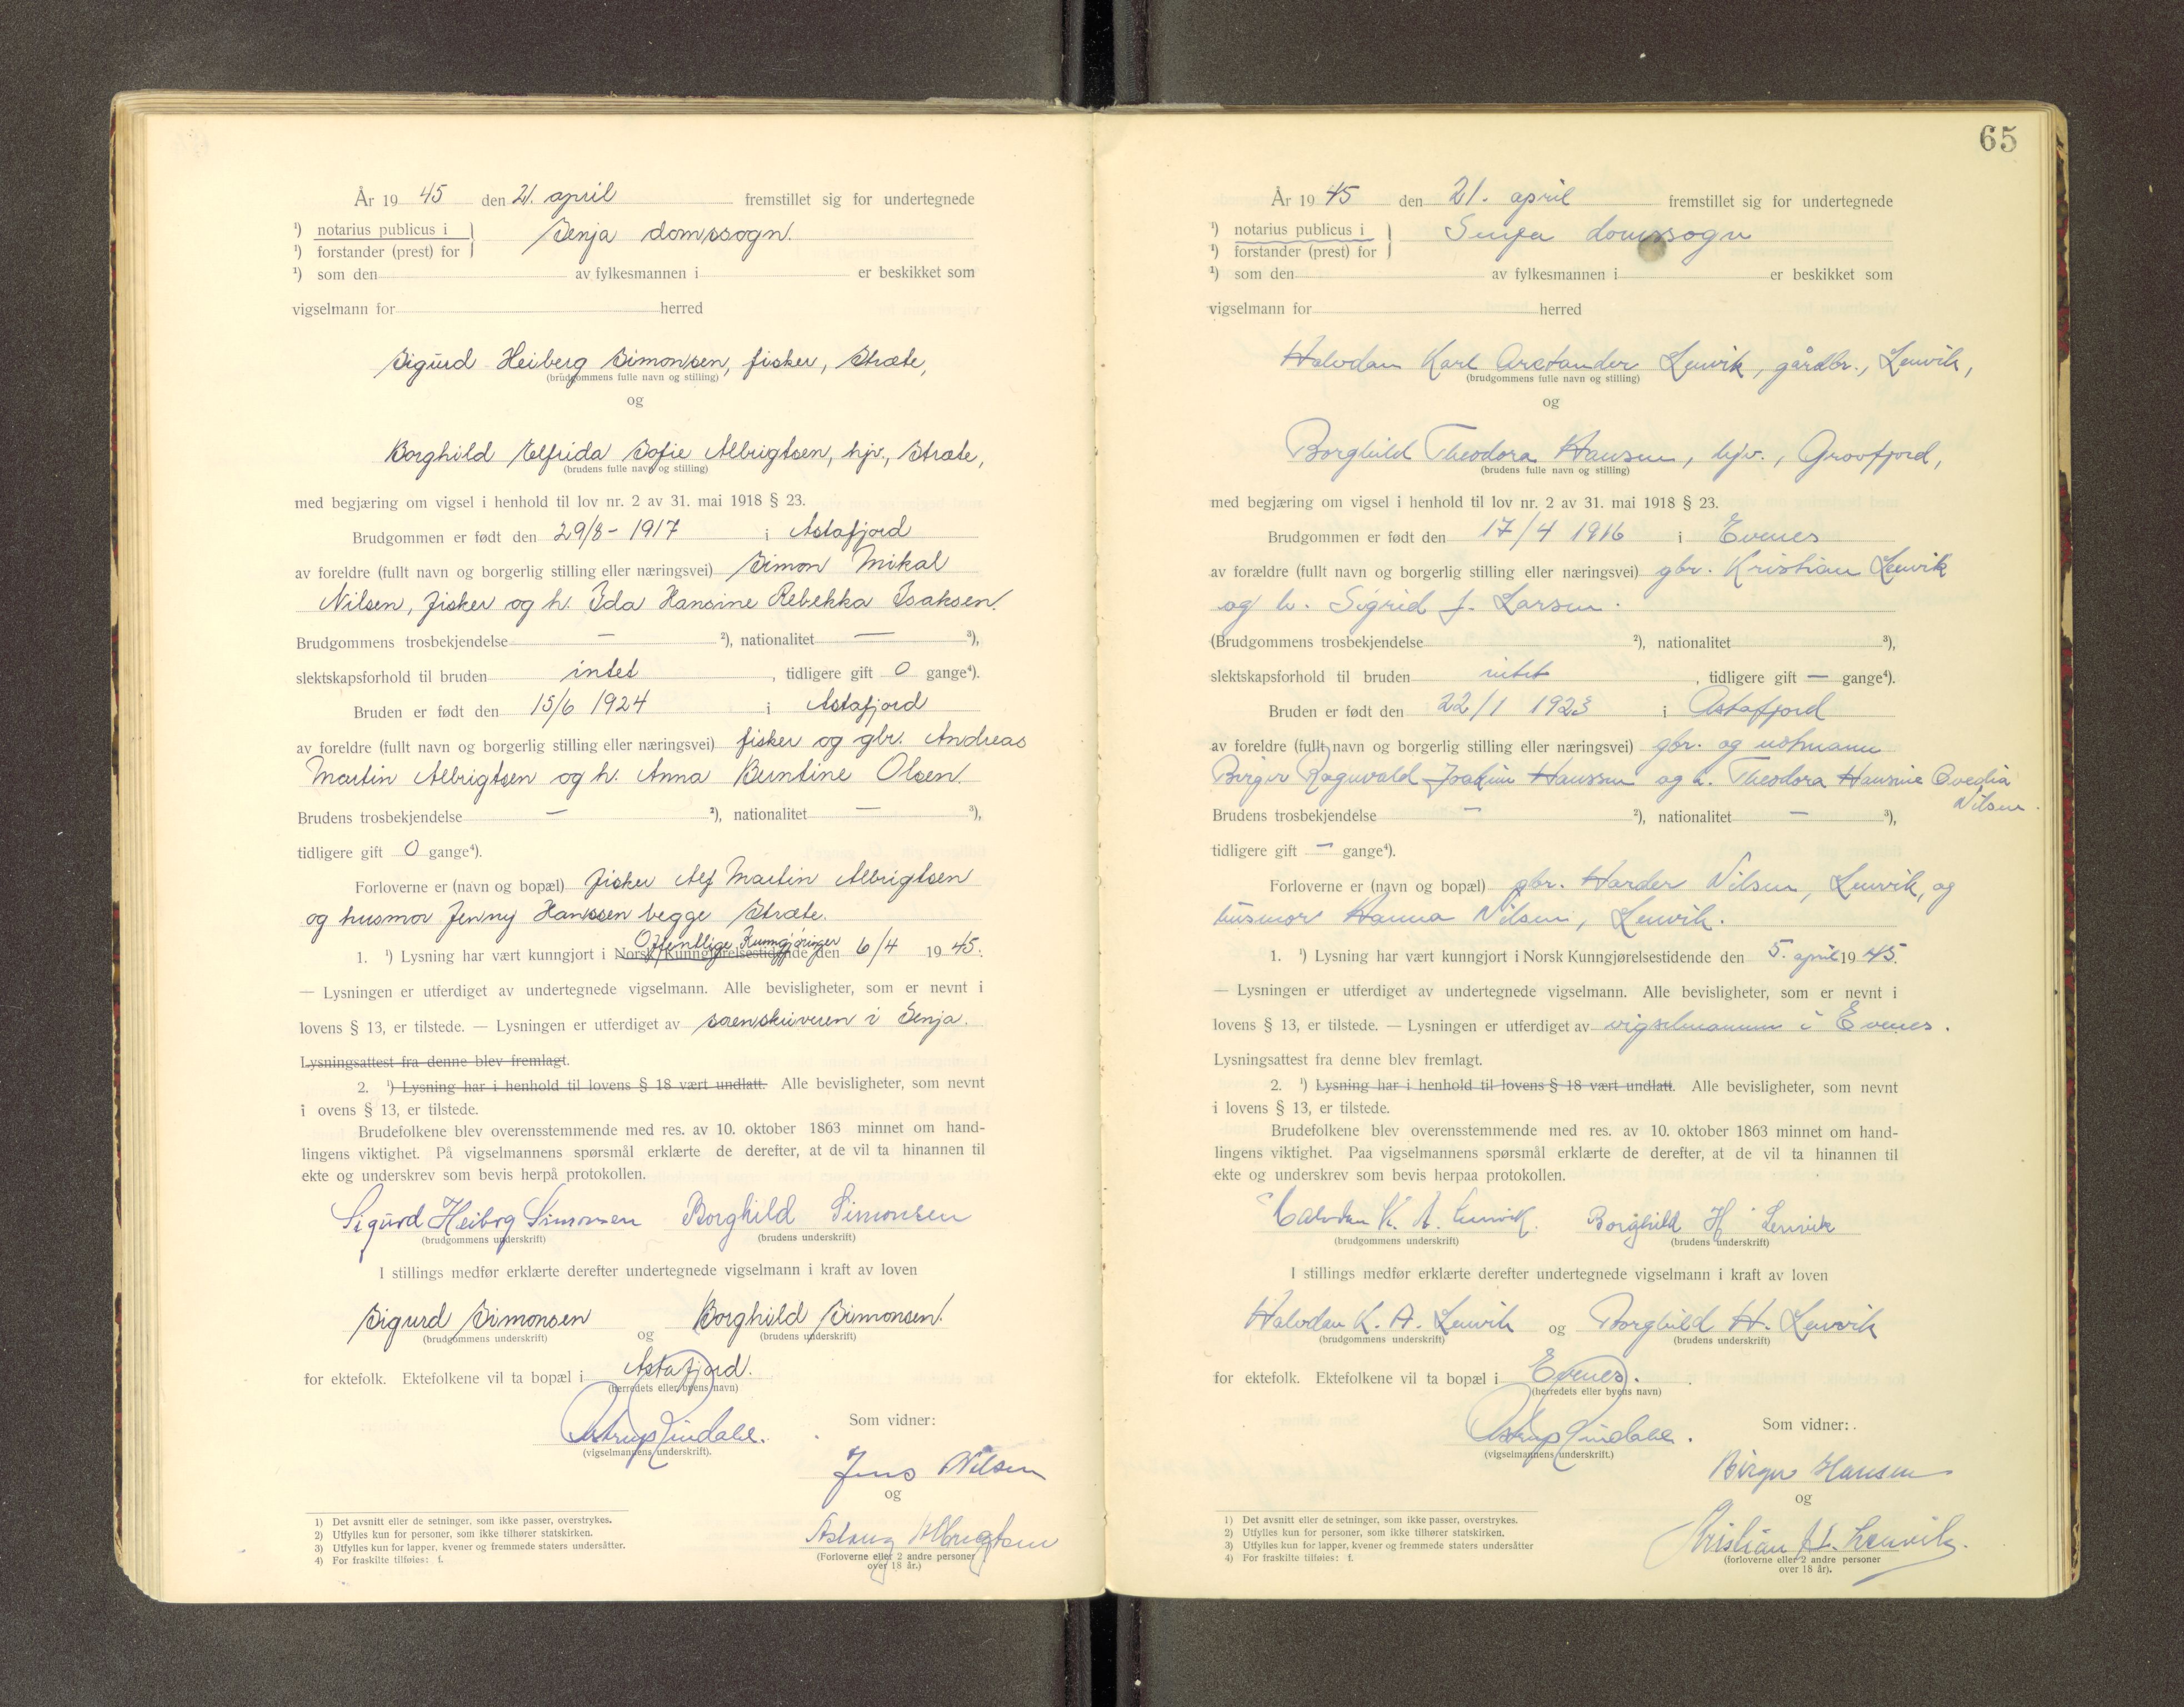 År 19 45 den 21. april fremstillet sig for undertegnede
¹) notarius publicus i
¹) forstander (prest) for } Senja domssogn.
¹) som den av fylkesmannen i er beskikket som
vigselmann for herred
Sigurd Heiberg Simonsen, fisker, Stræte,
(brudgommens fulle navn og stilling)
og
Borghild Elfrida Sofie Albrigtsen, hjv., Stræte,
(brudens fulle navn og stilling)
med begjæring om vigsel i henhold til lov nr. 2 av 31. mai 1918 § 23.
Brudgommen er født den 29/8 - 1917 i Astafjord
av foreldre (fullt navn og borgerlig stilling eller næringsvei) Simon Mikal
Nilsen, fisker og h. Ida Hansine Rebekka Isaksen.
Brudgommens trosbekjendelse — ²), nationalitet — ³),
slektskapsforhold til bruden intet, tidligere gift 0 gange⁴).
Bruden er født den 15/6 1924 i Astafjord
av foreldre (fullt navn og borgerlig stilling eller næringsvei) fisker og gbr. Andreas
Martin Albrigtsen og h. Anna Buntine Olsen.
Brudens trosbekjendelse — ²), nationalitet — ³),
tidligere gift 0 gange⁴).
Forloverne er (navn og bopæl) fisker Alf Martin Albrigtsen
og husmor Jenny Hanssen begge Stræte.
Offentlige Kunngjøringer
1. ¹) Lysning har vært kunngjort i Norsk Kunngjørelsestidende den 6/4 19 45.
— Lysningen er utferdiget av undertegnede vigselmann. Alle bevisligheter, som er nevnt i
lovens § 13, er tilstede. — Lysningen er utferdiget av sorenskriveren i Senja.
Lysningsattest fra denne blev fremlagt.
2. ¹) Lysning har i henhold til lovens § 18 vært undlatt. Alle bevisligheter, som nevnt
i ovens § 13, er tilstede.
Brudefolkene blev overensstemmende med res. av 10. oktober 1863 minnet om hand-
lingens viktighet. På vigselmannens spørsmål erklærte de derefter, at de vil ta hinannen til
ekte og underskrev som bevis herpå protokollen.
Sigurd Heibrg Simonsen Borghild Simonsen
(brudgommens underskrift) (brudens underskrift)
I stillings medfør erklærte derefter undertegnede vigselmann i kraft av loven
Sigurd Simonsen og Borghild Simonsen.
(brudgommens underskrift) (brudens underskrift)
for ektefolk. Ektefolkene vil ta bopæl i Astafjord.
(herredets eller byens navn)
Astrup Lindahl.
(vigselmannens underskrift).
Som vidner:
Jens Nilsen
og
Aslaug Albrigtsen
(Forloverne eller 2 andre personer
over 18 år.)
1) Det avsnitt eller de setninger, som ikke passer, overstrykes.
2) Utfylles kun for personer, som ikke tilhører statskirken.
3) Utfylles kun for lapper, kvener og fremmede staters undersåtter.
4) For fraskilte tilføies: f.
65
År 19 45 den 21. april fremstillet sig for undertegnede
¹) notarius publicus i
¹) forstander (prest) for } Senja domssogn
¹) som den av fylkesmannen i er beskikket som
vigselmann for herred
Halvdan Karl Arctander Lenvik, gårdbr., Lenvik,
(brudgommens fulle navn og stilling)
og
Borghild Theodora Hansen, hjv., Grovfjord,
(brudens fulle navn og stilling)
med begjæring om vigsel i henhold til lov nr. 2 av 31. mai 1918 § 23.
Brudgommen er født den 17/4 1916 i Evenes
av forældre (fullt navn og borgerlig stilling eller næringsvei) gbr. Kristian Lenvik
og h. Sigrid f. Larsen.
(Brudgommens trosbekjendelse ²), nationalitet ³),
slektskapsforhold til bruden intet, tidligere gift — gange⁴).
Bruden er født den 22/1 1923 i Astafjord
av foreldre (fullt navn og borgerlig stilling eller næringsvei) gbr. og notmann
Birger Ragnvald Joakim Hanssen og h. Theodora Hansine Ovedia
Nilsen.
Brudens trosbekjendelse — ²), nationalitet — ³),
tidligere gift — gange⁴).
Forloverne er (navn og bopæl) gbr. Harder Nilsen, Lenvik, og
husmor Hanna Nilsen, Lenvik.
1. ¹) Lysning har vært kunngjort i Norsk Kunngjørelsestidende den 5. april 19 45.
— Lysningen er utferdiget av undertegnede vigselmann. Alle bevisligheter, som er nevnt i
lovens § 13, er tilstede. — Lysningen er utferdiget av vigselmannen i Evenes.
Lysningsattest fra denne blev fremlagt.
2. ¹) Lysning har i henhold til lovens § 18 vært undlatt. Alle bevisligheter, som nevnt
i lovens § 13, er tilstede.
Brudefolkene blev overensstemmende med res. av 10. oktober 1863 minnet om hand-
lingens viktighet. Paa vigselmannens spørsmål erklærte de derefter, at de vil ta hinannen til
ekte og underskrev som bevis herpaa protokollen.
Halvdan K. A. Lenvik. Borghild H Lenvik
(brudgommens underskrift) (brudens underskrift)
I stillings medfør erklærte derefter undertegnede vigselmann i kraft av loven
Halvdan K. A. Lenvik og Borghild H. Lenvik
(brudgommens underskrift) (brudens underskrift)
for ektefolk. Ektefolkene vil ta bopæl i Evenes.
(herredets eller byens navn)
Astrup Lindahl.
(vigselmannens underskrift.)
Som vidner:
Birger Hansen
og
Kristian A. Lenvik.
(forloverne eller 2 andre personer
over 18 år).
1) Det avsnitt eller de setninger, som ikke passer, overstrykes.
2) Utfylles kun for personer, som ikke tilhører statskirken.
3) Utfylles kun for lapper, kvener og fremmede staters undersåtter
4) For fraskilte tilføies: f.